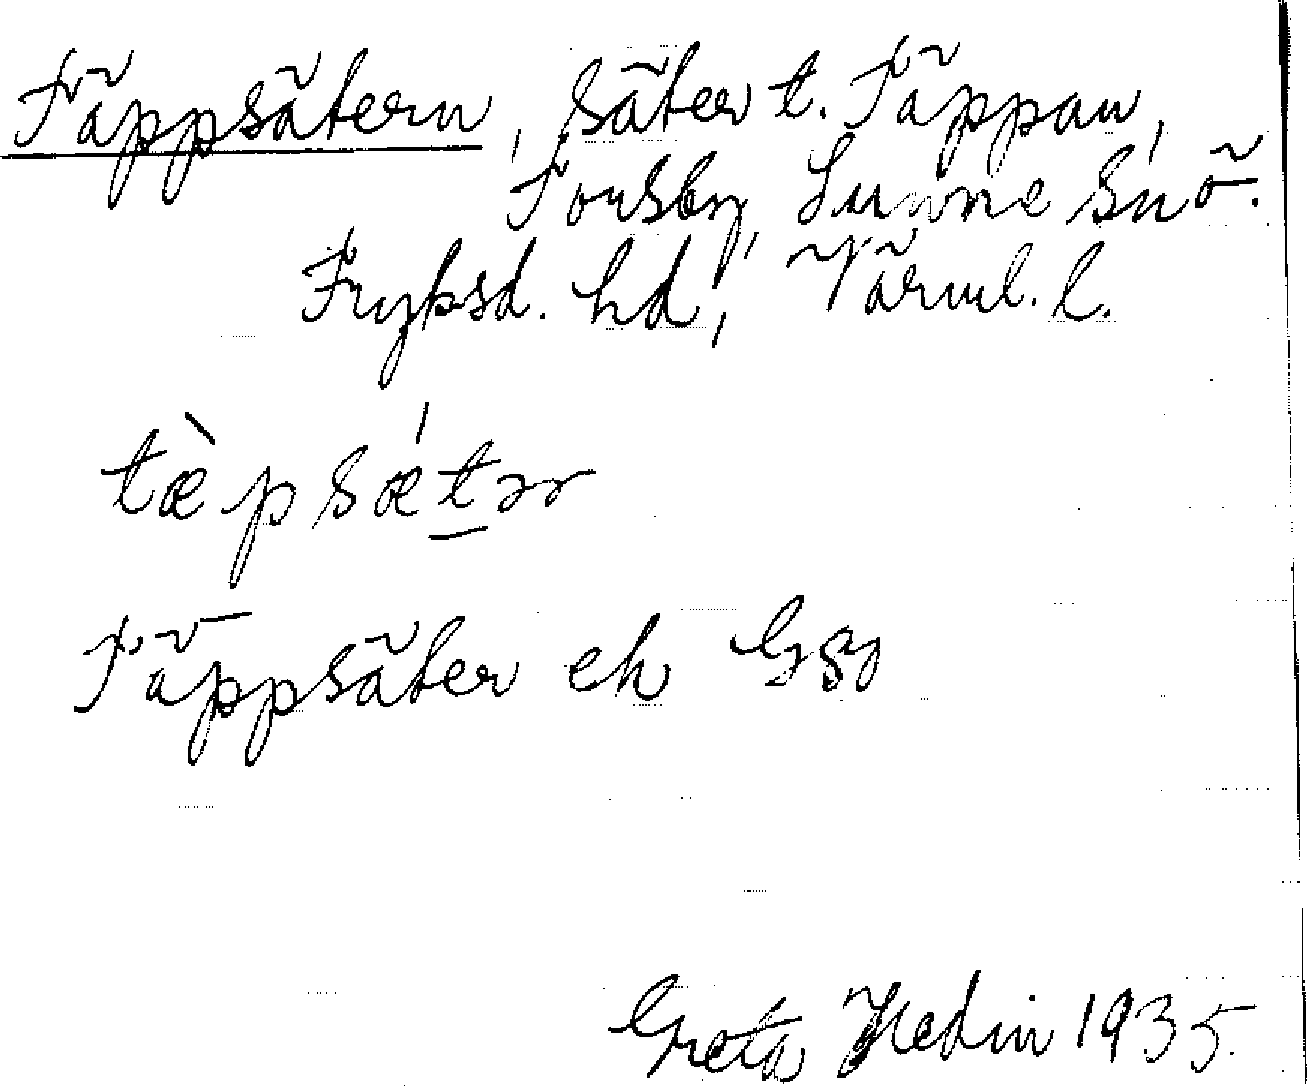 Täppsätern, säter t. Täppan,
Torsby, Sunne snö.
Fryksd. hd, Värml. l.
tæ̀psǽtər
Täppsäter ek
Greta Hedin 1935.